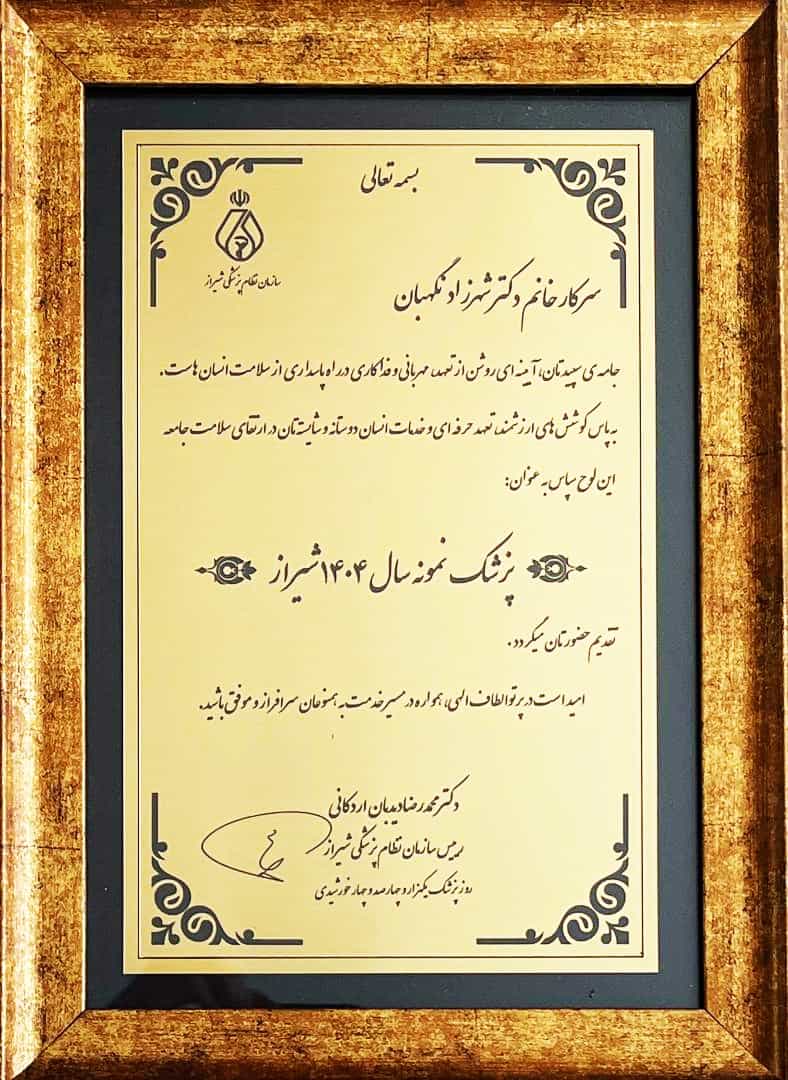 بسمه تعالی
سازمان نظام پزشکی شیراز
سرکار خانم دکتر شهرزاد نگهبان
جامه ی سپیدتان، آینه ای روشن از تعهد، مهربانی و فداکاری در راه پاسداری از سلامت انسان هاست.
به پاس کوشش های ارزشمند، تعهد حرفه ای و خدمات انسان دوستانه و شایسته تان در ارتقای سلامت جامعه
این لوح سپاس به عنوان:
پزشک نمونه سال ۱۴۰۴ شیراز
تقدیم حضورتان میگردد.
امید است در پرتو الطاف الهی، همواره در مسیر خدمت به همنوعان سرافراز و موفق باشید.
دکتر محمدرضا دیدبان اردکانی
رییس سازمان نظام پزشکی شیراز
روز پزشک یکهزار و چهارصد و چهار خورشیدی